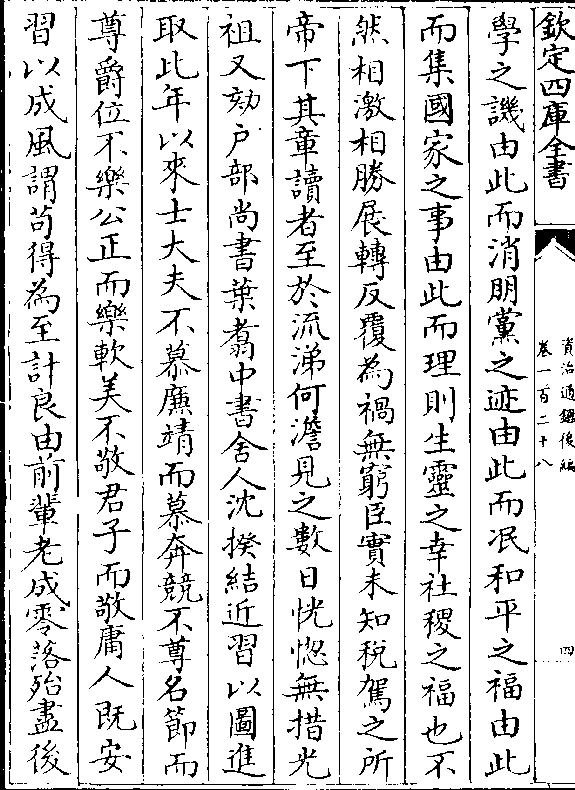 欽定四庫全書
資治通鑑後編
卷一百二十八
四
學之譏由此而消朋黨之迹由此而泯和平之福由此
而集國家之事由此而理則生靈之幸社稷之福也不
然相激相勝展轉反覆為禍無窮臣實未知稅駕之所
帝下其章讀者至於流涕何澹見之數日恍惚無措光
祖又劾户部尚書葉翥中書舍人沈揆結近習以圖進
取比年以來士大夫不慕廉靖而慕奔競不尊名節而
尊爵位不樂公正而樂軟美不敬君子而敬庸人既安
習以成風謂茍得為至計良由前輩老成零落殆盡後